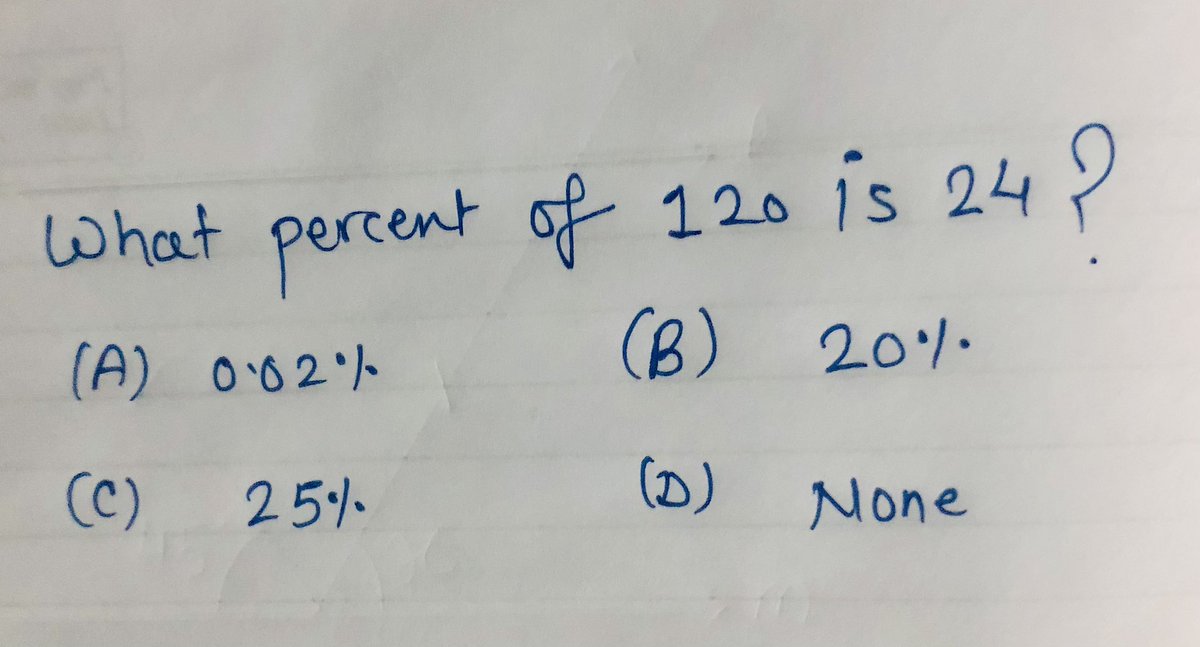 What percent of 120 is 24 ?
(A) 0·02% (B) 20%
(C) 25% (D) None